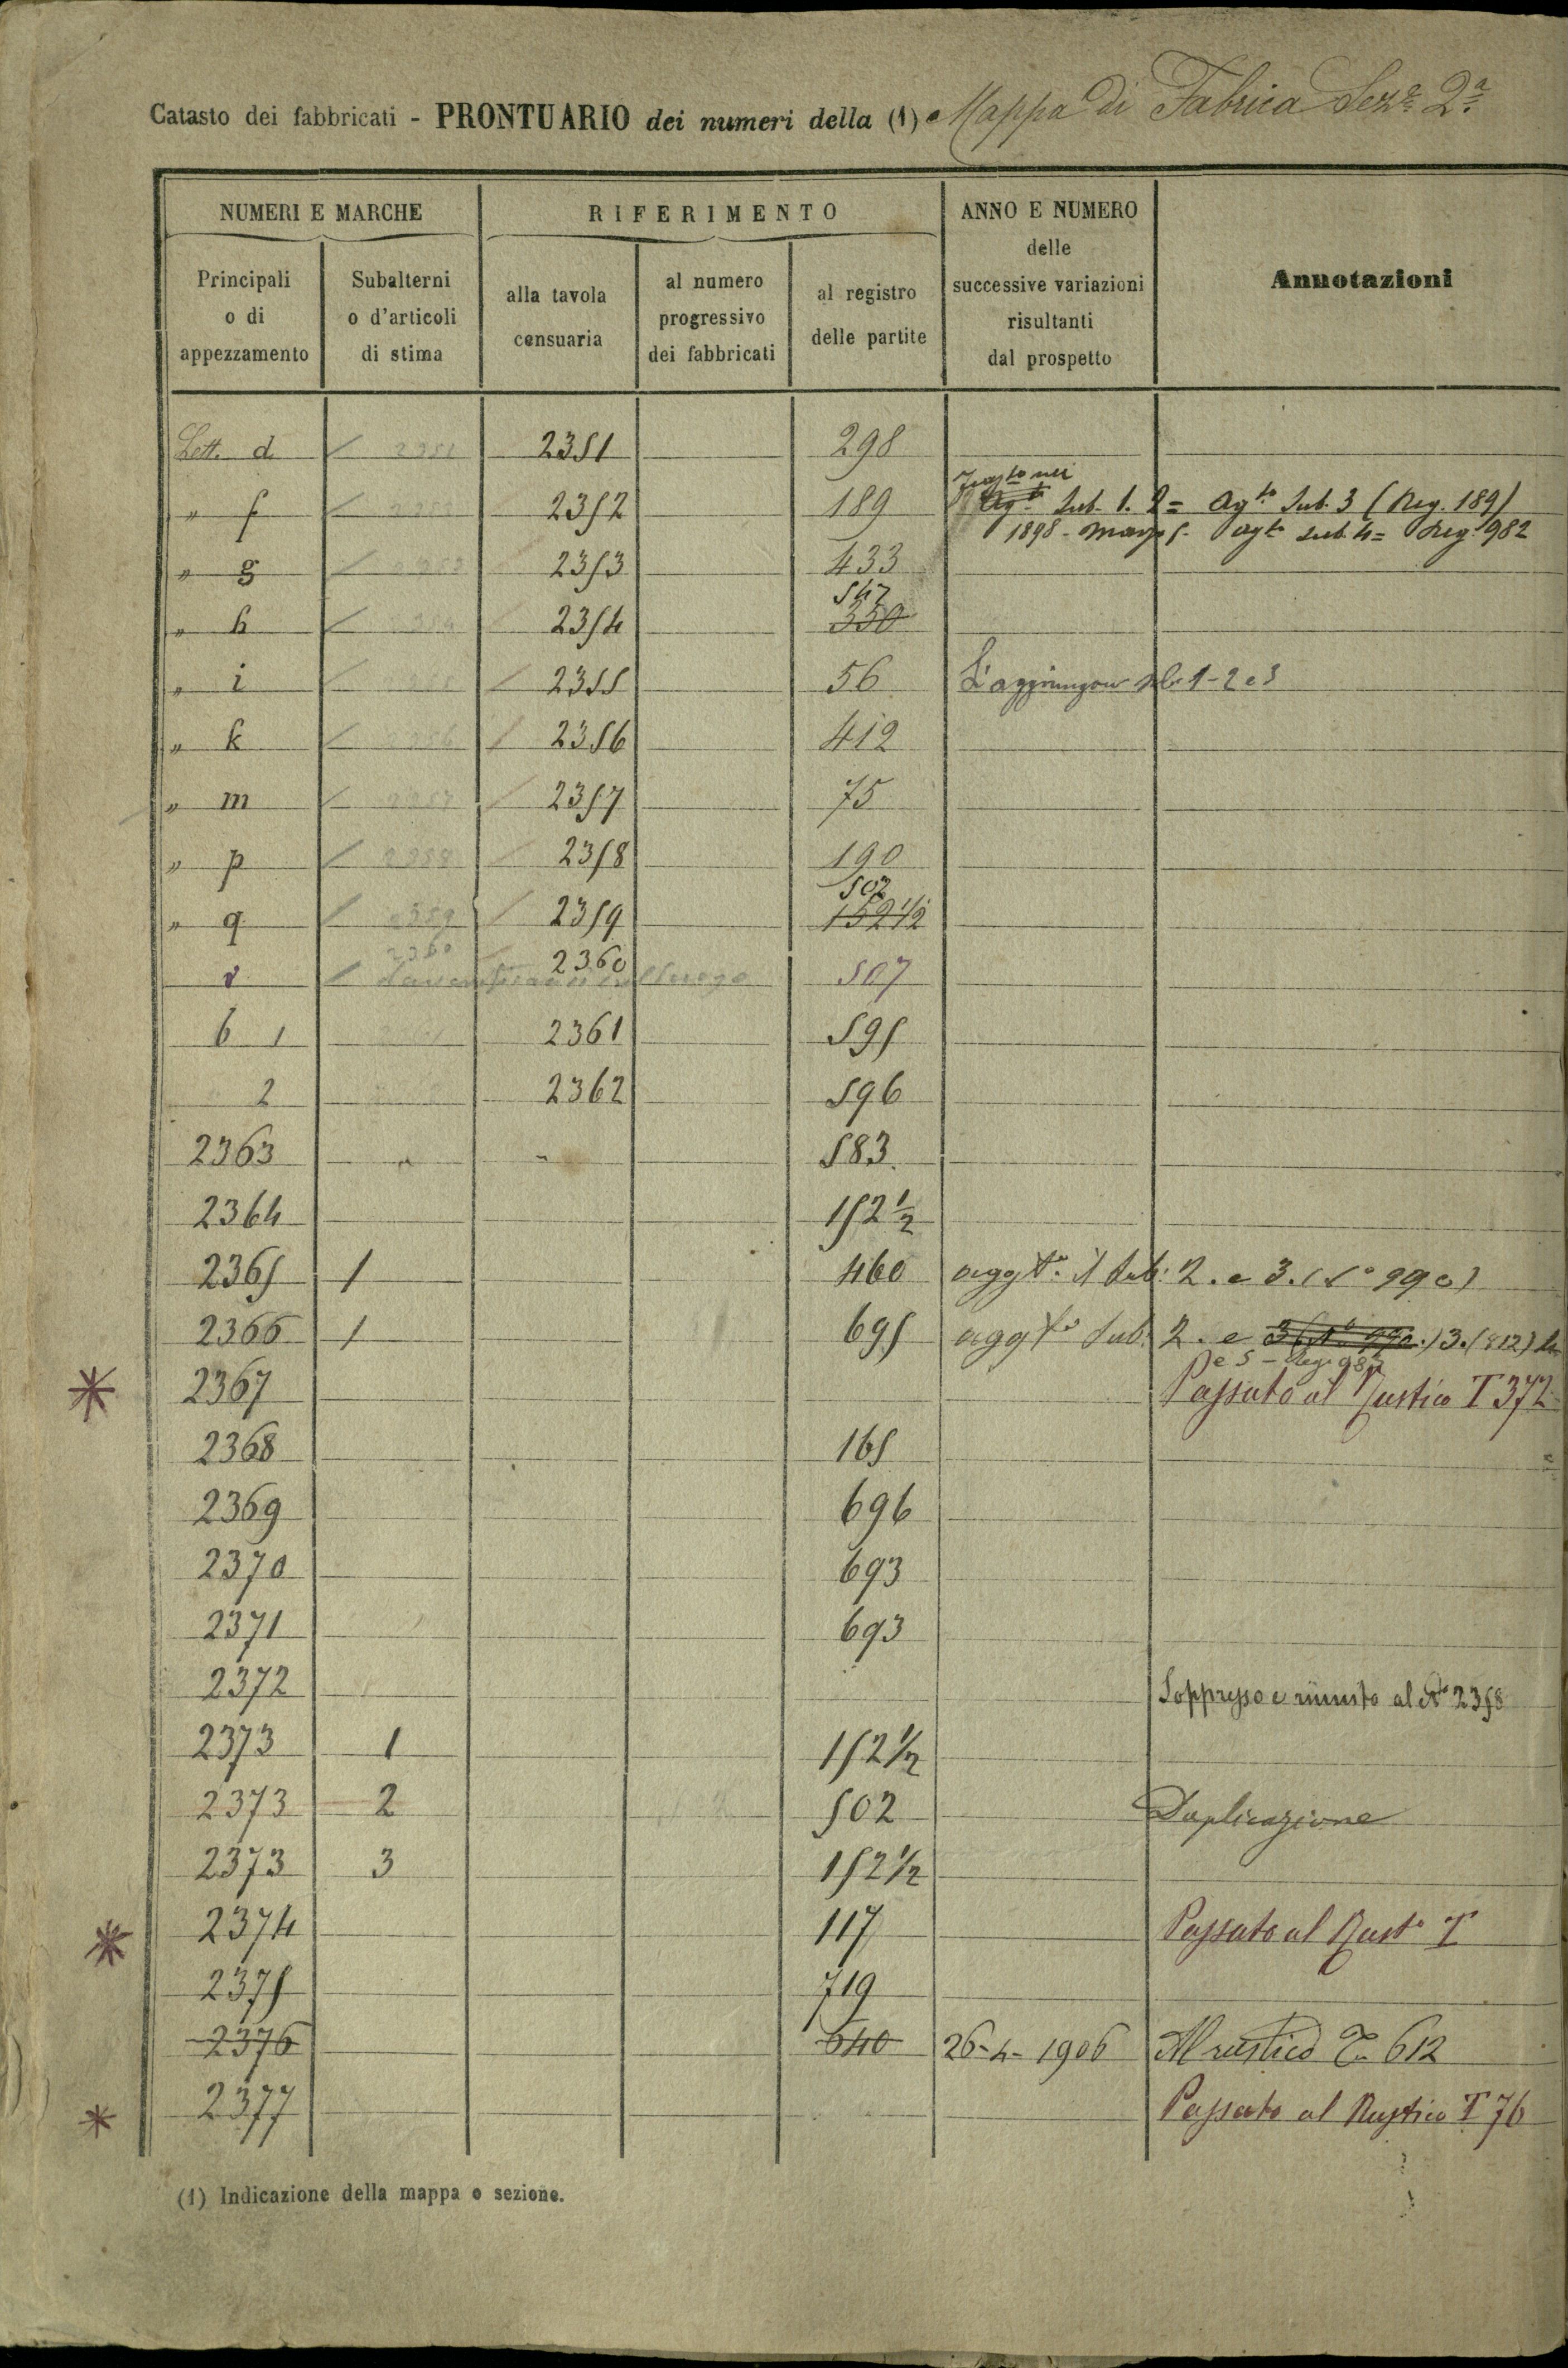 Catasto dei fabbricati - PRONTUARIO dei numeri della (1) Mappa di Fabrica Sez.ª 2.ª
NUMERI E MARCHE
RIFERIMENTO
ANNO E NUMERO delle successive variazioni risultanti dal prospetto
Annotazioni
Principali o di appezzamento
Subalterni o d'articoli di stima
alla tavola censuaria
al numero progressivo dei fabbricati
al registro delle partite
Lett. d 2351 2351 298
" f 2352 189 Agto Sub. 1. 2 = Agto Sub. 3 (Reg. 189)
1898 - agto sub. 4 = Reg. 982
" g 2353 2353 433
547
" h 2354 2354 350
" i 2355 56 S'aggiungono sub. 1 - 2 e 3
" k 2356 2356 412
" m 2357 2357 75
" p 2358 2358 190
502
" q 2359 2359 152 1/2
r 2360 2360 507
b 1 2361 595
2 2362 596
2363 " " 583
2364 152 1/2
2365 1 460 aggto il Sub. 2. e 3. (N° 990)
2366 1 695 aggto Sub. 2. e 3 (N° 990.) 3. (812)
e 5 - Reg. 982
2367 Passato al Rustico T 372
2368 165
2369 696
2370 693
2371 693
2372 Soppresso e riunito al No 2358
2373 1 152 1/2
2373 2 502 Duplicazione
2373 3 152 1/2
2374 117 Passato al Rusto T
2375 719
2376 640 26-4-1906 Al rustico T. 612
2377 Passato al Rustico T 76
(1) Indicazione della mappa o sezione.